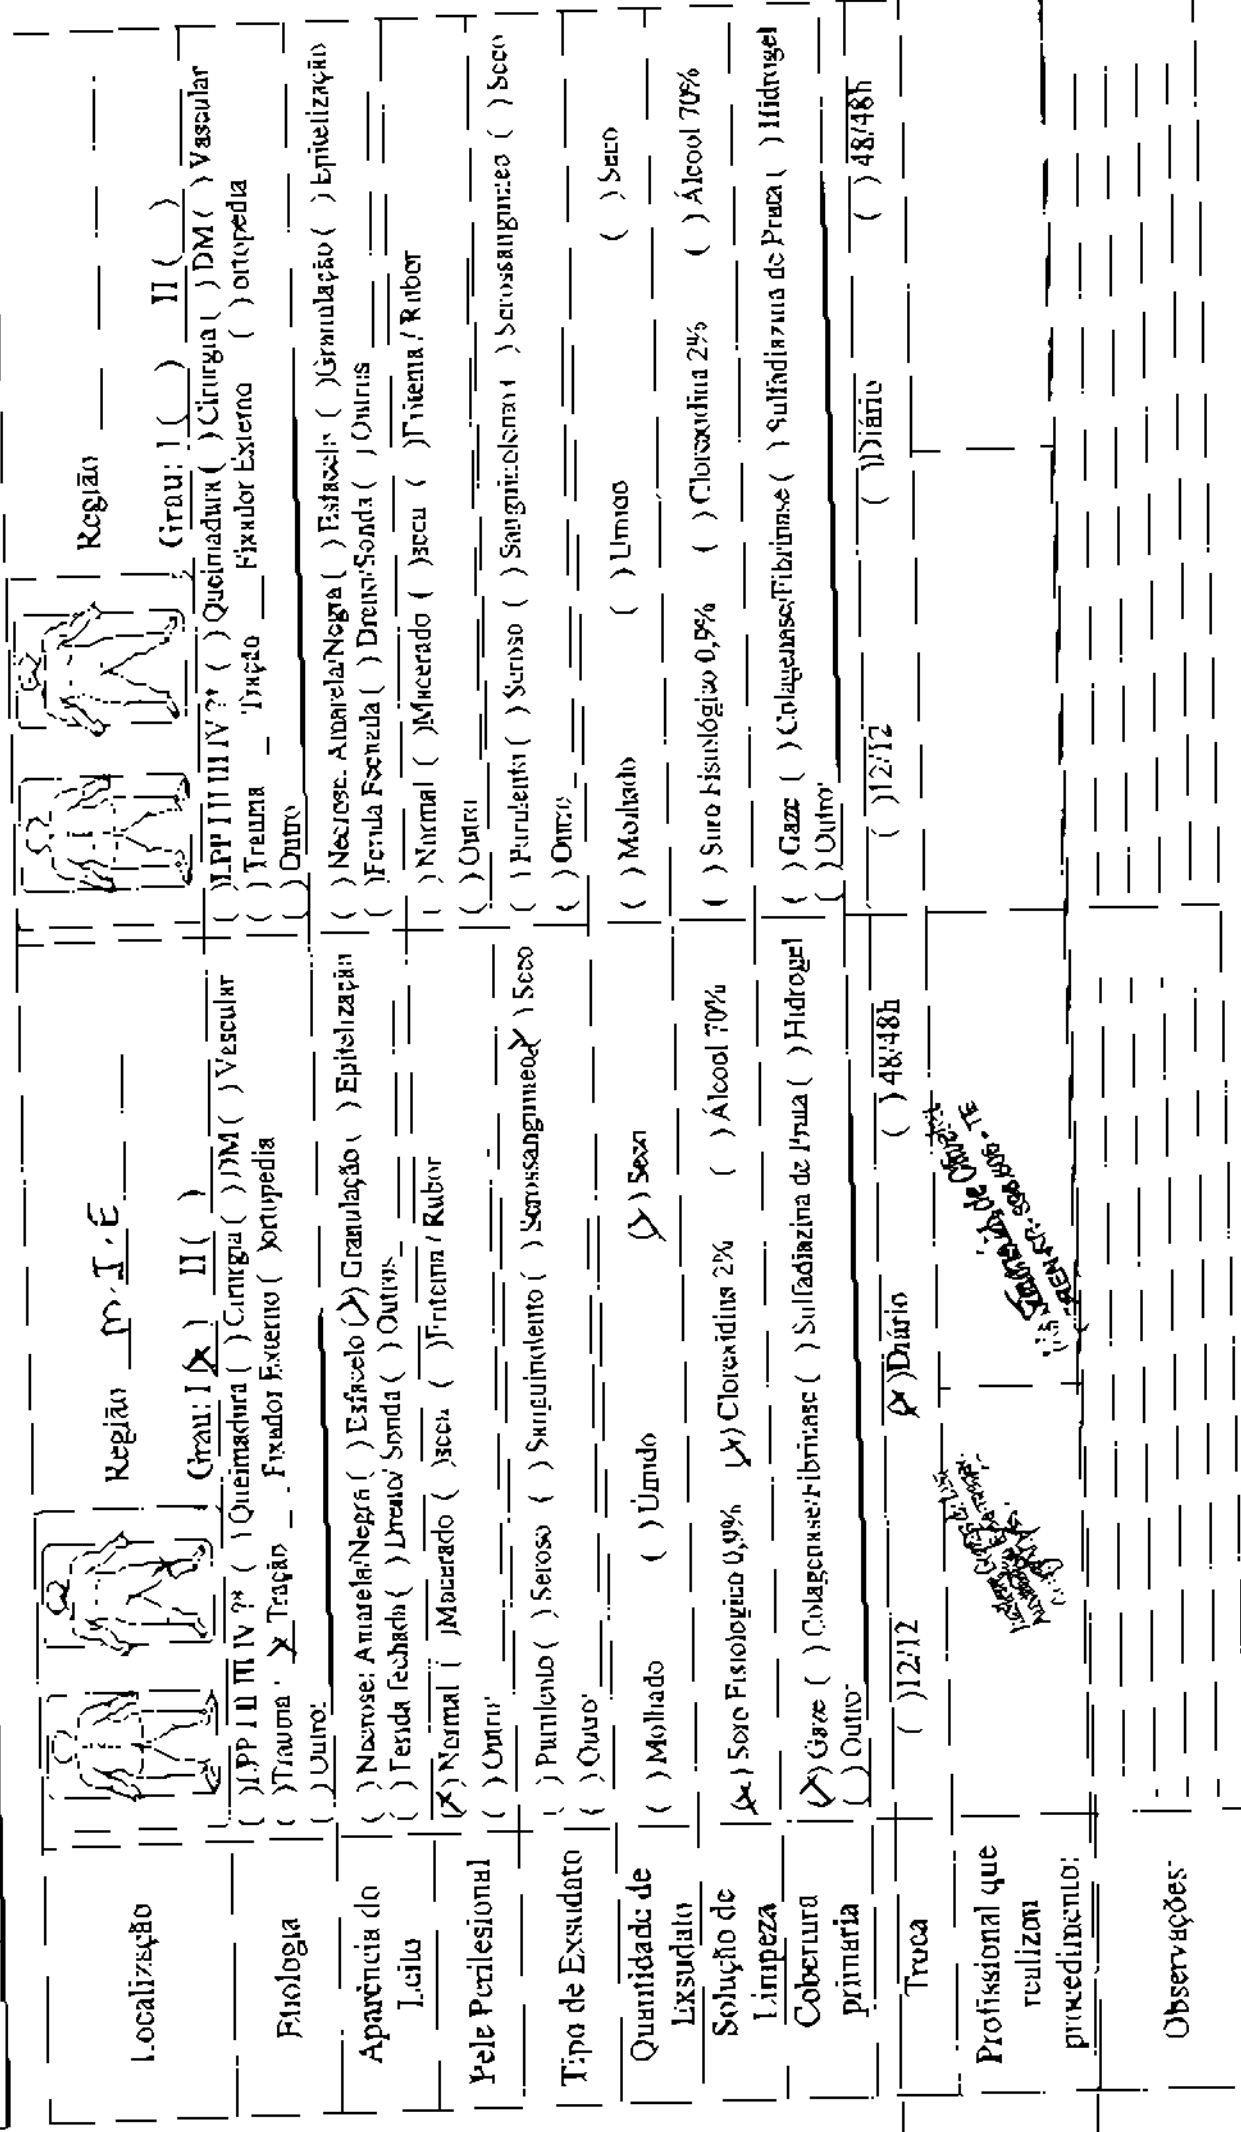 Localização
Região M.I.E
Grau: I (X) II ( )
Região
Grau: I ( ) II ( )
Etiologia
( )LPP I II III IV ?* ( ) Queimadura ( ) Cirurgia ( ) DM ( ) Vascular
( )Trauma X Tração Fixador Externo ( )ortopedia
( ) Outro:
( )LPP I II III IV ?* ( ) Queimadura ( ) Cirurgia ( ) DM ( ) Vascular
( ) Trauma Tração Fixador Externo ( ) ortopedia
( ) Outro
Aparência do
Leito
( ) Necrose: Amarela/Negra ( ) Esfacelo (X) Granulação ( ) Epitelização
( ) Ferida fechada ( ) Dreno/ Sonda ( ) Outros
( ) Necrose: Amarela/Negra ( ) Esfacelo ( )Granulação ( ) Epitelização
( )Ferida Fechada ( ) Dreno/Sonda ( ) Outros
Pele Perilesional
(X) Normal ( )Macerado ( )seca ( )Eritema / Rubor
( ) Outro:
( ) Normal ( )Macerado ( )seca ( )Eritema / Rubor
( ) Outro
Tipo de Exsudato
( ) Purulento ( ) Seroso ( ) Sanguinolento ( ) Serossanguineo X ) Seco
( ) Outro:
( ) Purulento ( ) Seroso ( ) Sanguinolento ( ) Serossanguineo ( ) Seco
( ) Outro:
Quantidade de
Exsudato
( ) Molhado ( ) Úmido (X) Seco
( ) Molhado ( ) Umido ( ) Seco
Solução de
Limpeza
(X) Soro Fisiologico 0,9% (X) Clorexidina 2% ( ) Álcool 70%
( ) Soro Fisiológico 0,9% ( ) Clorexidina 2% ( ) Álcool 70%
Cobertura
primaria
(X) Gaze ( ) Colagenase/Fibrinase ( ) Sulfadiazina de Prata ( ) Hidrogel
( ) Outro:
( ) Gaze ( ) Colagenase/Fibrinase ( ) Sulfadiazina de Prata ( ) Hidrogel
( ) Outro:
Troca
( )12/12 (X)Diário ( ) 48/48h
( )12/12 ( )Diário ( ) 48/48h
Profissional que
realizou
procedimento:
Observações: